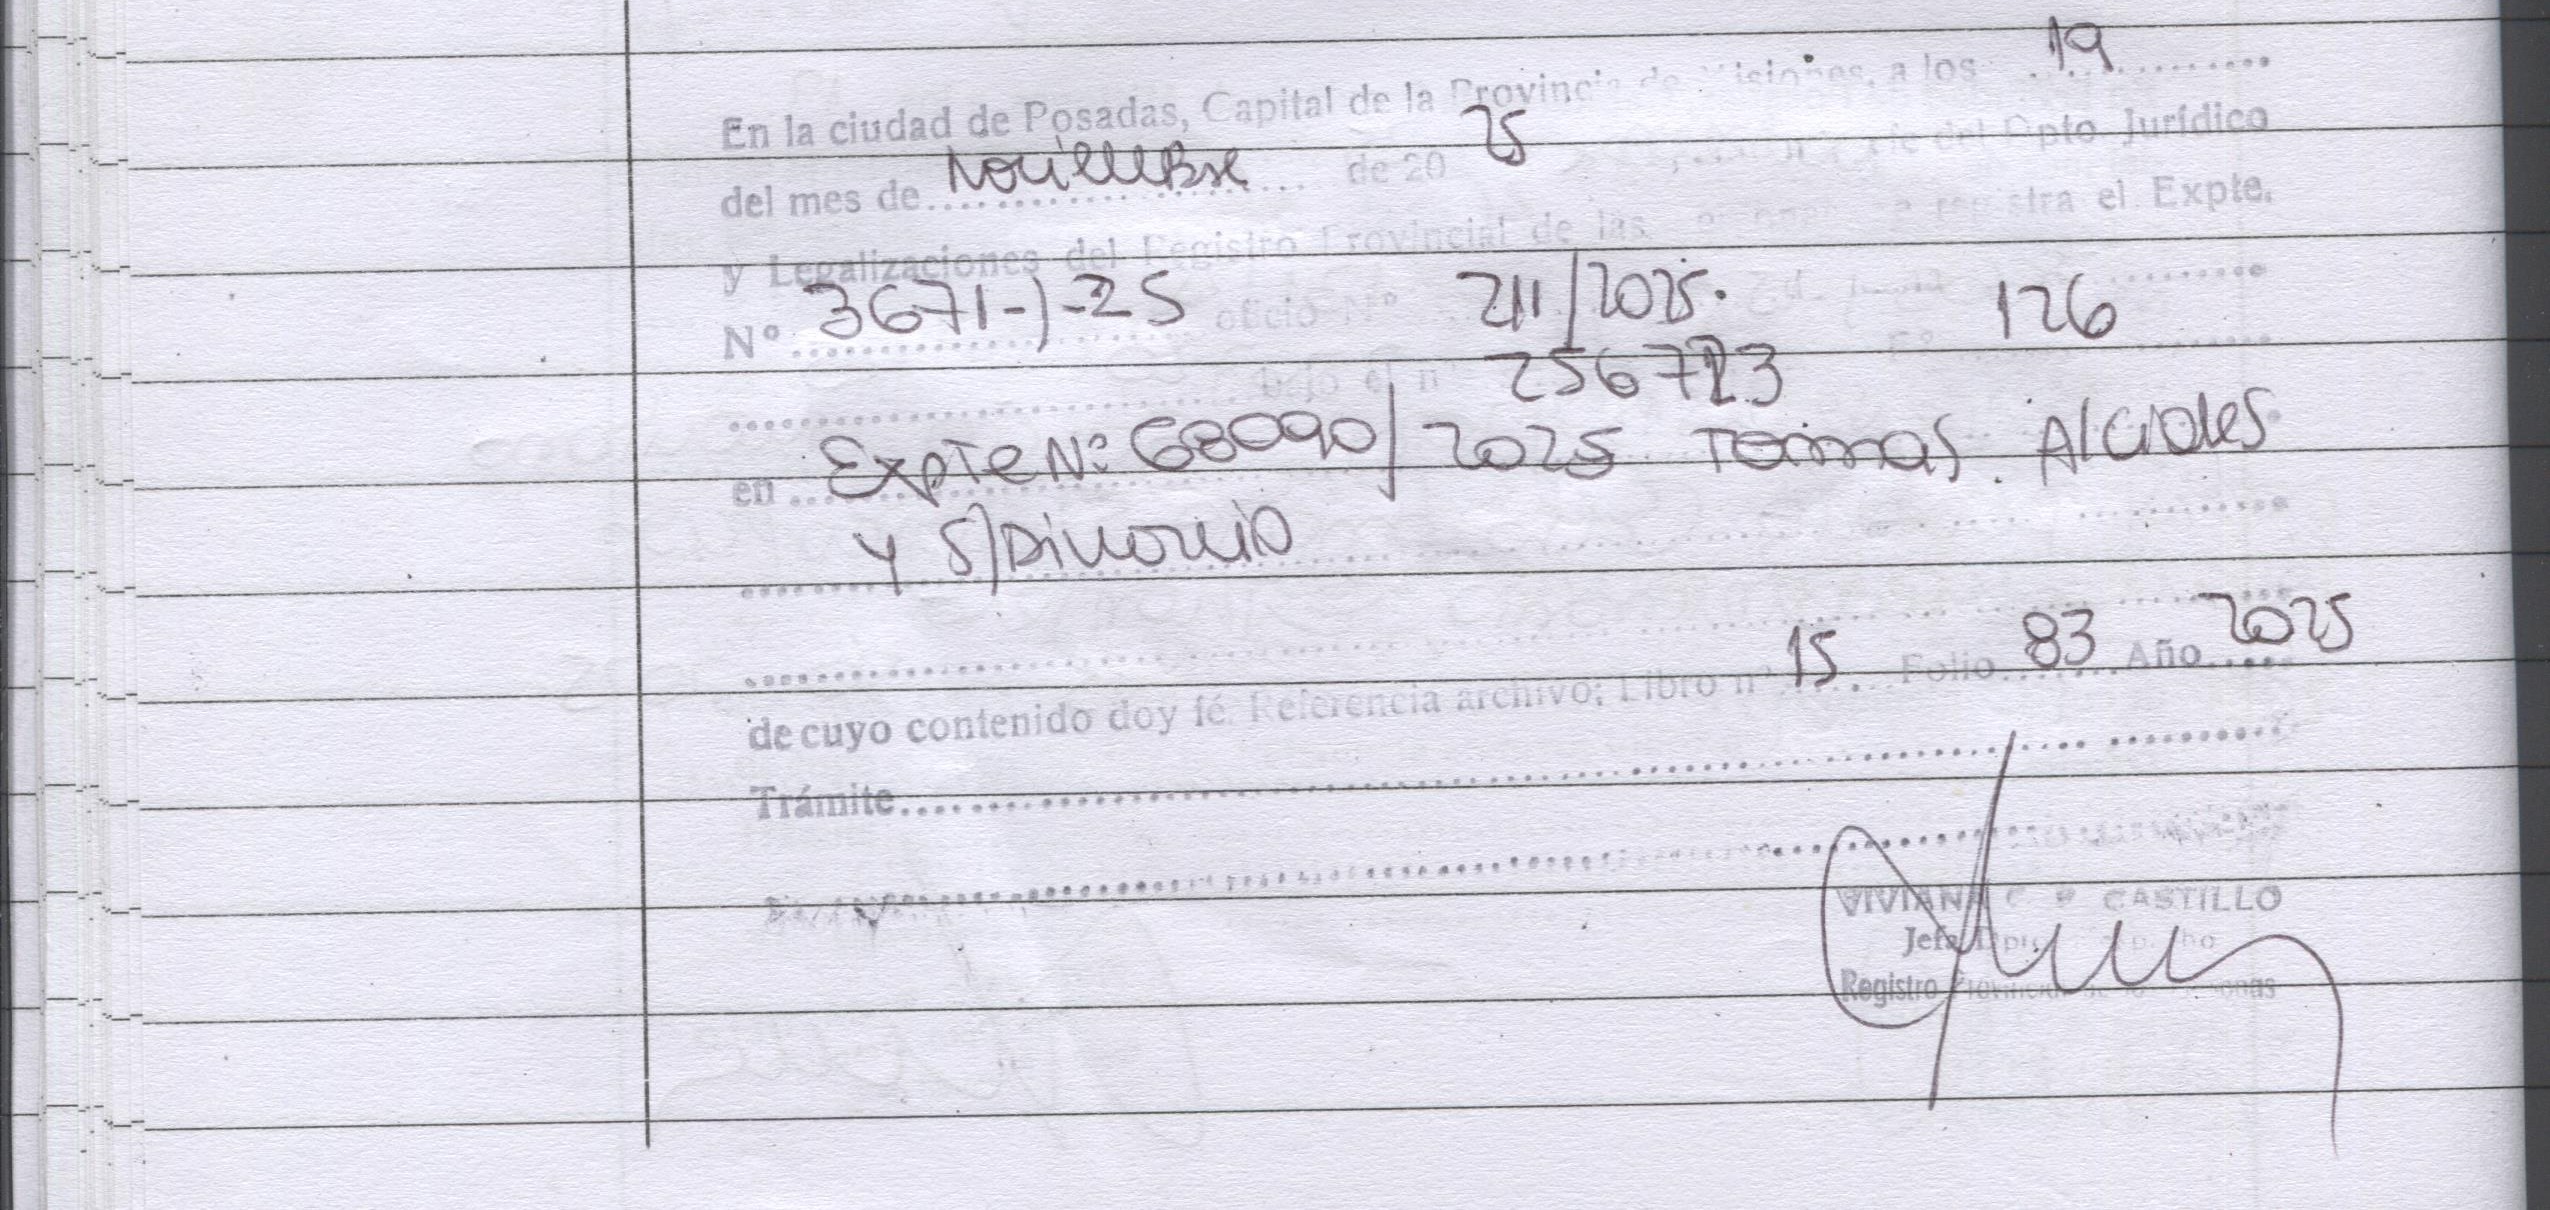 En la ciudad de Posadas, Capital de la Provincia de Misiones, a los 19
del mes de Noviembre de 20 25 Dpto Jurídico
y Legalizaciones del Registro Provincial de las registra el Expte.
Nº 3671-J-25 oficio Nº 211/2025. 126
bajo el nº 256723
en Expte Nº: 68090/2025 Alcides
y S/Divorcio
de cuyo contenido doy fé. Referencia archivo; Libro nº 15 Folio 83 Año 2025
Trámite
VIVIANA CASTILLO
Jefa Dpto.
Registro Provincial de las Personas